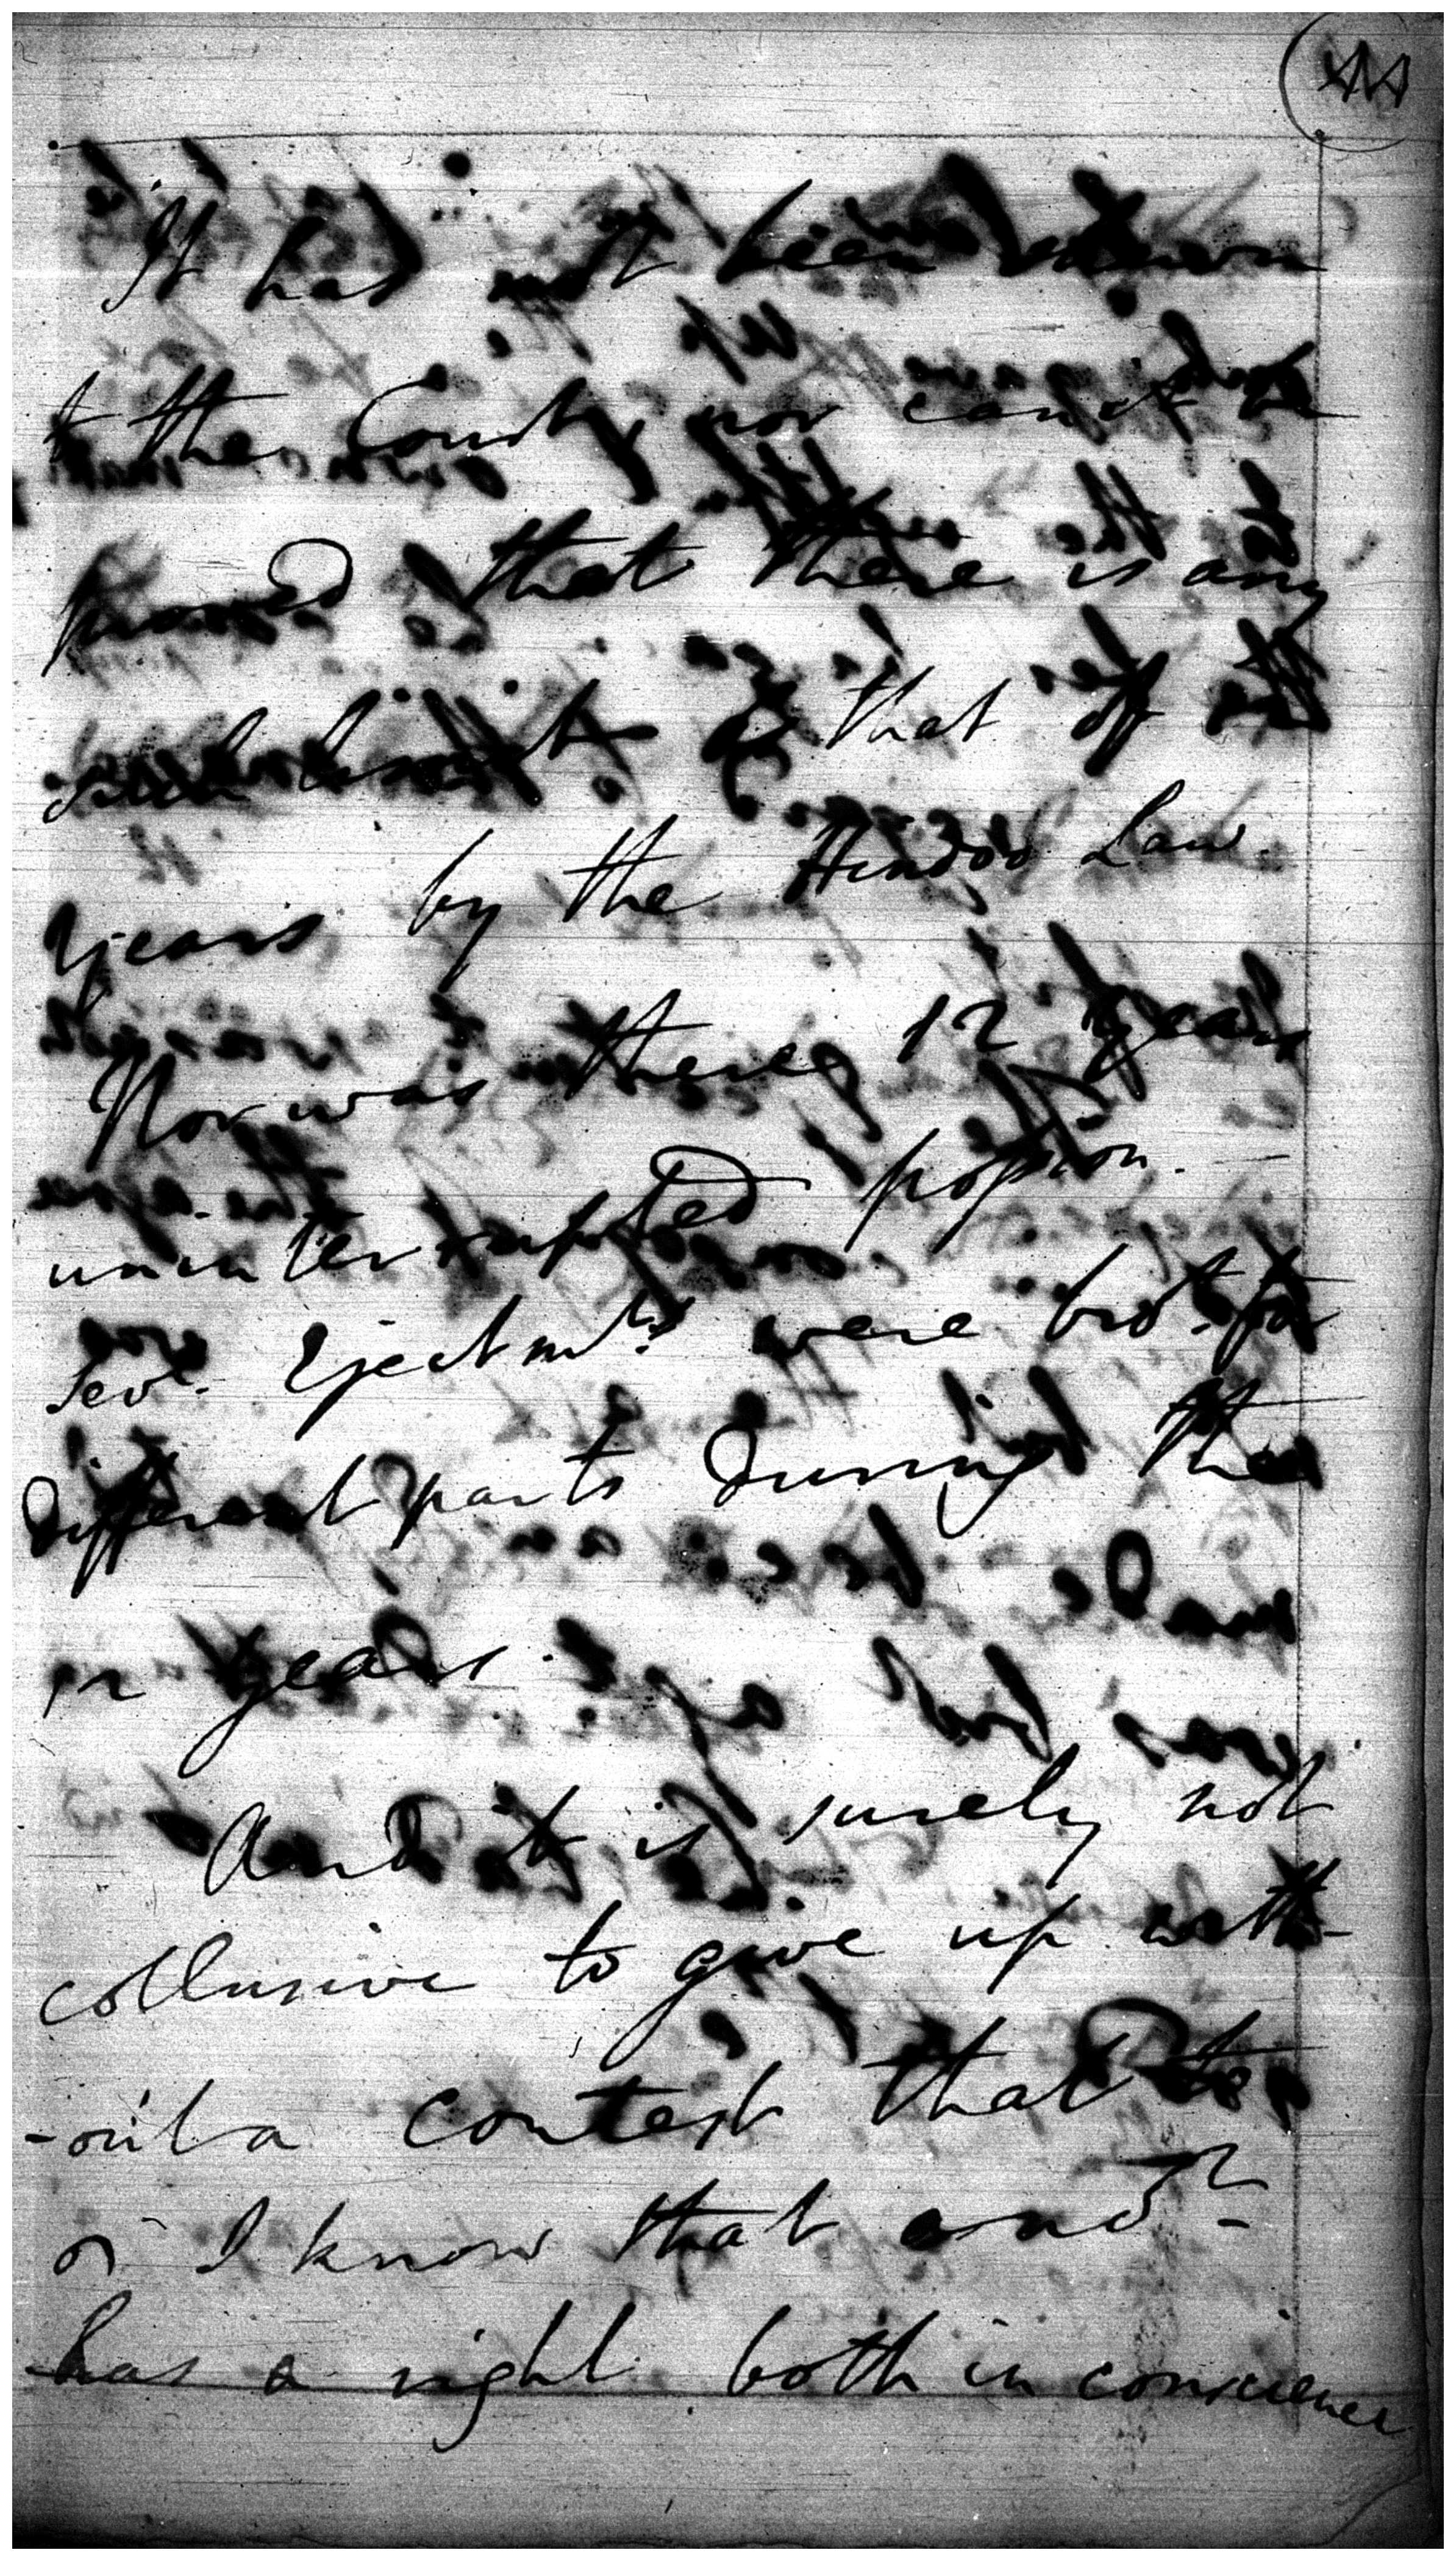 It has not been shewn
to the Court, nor can it be
proved that there is any
such limit as that of 12
years by the Hindoo Law.
Nor was there 12 years
uninterrupted possion.
Sevl. Ejectmts. were brot. for
different parts during the
12 years.
And it is surely not
collusive to give up with-
-out a contest that to
I know that anor.
has a right both in conscience